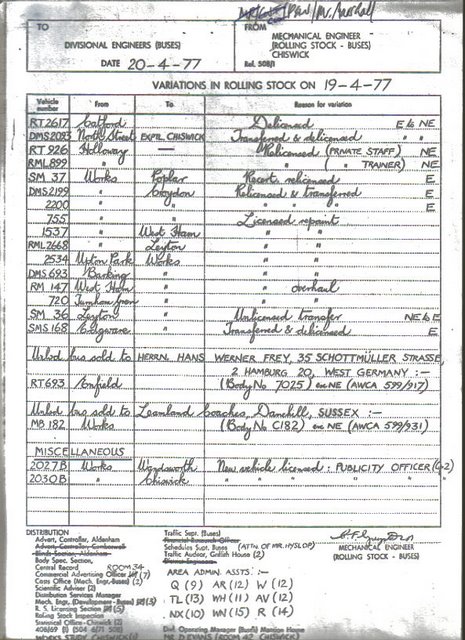 TO
FROM
DIVISIONAL ENGINEERS (BUSES)
MECHANICAL ENGINEER
(ROLLING STOCK - BUSES)
CHISWICK
DATE 20-4-77
Ref. 508/1
VARIATIONS IN ROLLING STOCK ON 19-4-77
Vehicle number From To Reason for variation
RT2617 Catford Delicensed E to NE
DMS2083 North Street EXPTL. CHISWICK Transferred & delicensed " "
RT 926 Holloway — Relicensed (PRIVATE STAFF) NE
RML899 " " ( " TRAINER) NE
SM 37 Works Poplar Recert. relicensed E
DMS2199 " Croydon Relicensed & transferred E
2200 " " " " E
755 " " Licensed repaint
1537 " West Ham " "
RML2668 " Leyton " "
2534 Upton Park Works " "
DMS693 Barking " " "
RM 147 West Ham " " overhaul
720 Turnham Green " " "
SM 36 Leyton " Unlicensed transfer NE to E
SMS 168 Edgware " Transferred & delicensed E
Unlsd bus sold to HERRN. HANS WERNER FREY, 35 SCHOTTMÜLLER STRASSE,
2 HAMBURG 20, WEST GERMANY :-
RT693 Enfield (Body No 7025) ex NE (AWCA 599/917)
Unlsd bus sold to Leamland Coaches, Danehill, SUSSEX :-
MB 182 Works (Body No C182) ex NE (AWCA 599/931)
MISCELLANEOUS
2027B Works Wandsworth New vehicle licensed : PUBLICITY OFFICER (G-2)
2030B " Chiswick " " " " "
DISTRIBUTION
Advert, Controller, Aldenham
Advert, Controller, Camberwell
Blinds Section, Aldenham
Body Spec, Section,
Central Record ROOM 34
Commercial Advertising Officer (7)
Cops Office (Mech. Engr.-Buses) (2)
Scientific Adviser (2)
Dist Services Manager
Mech. Engr. (Development - Buses) (3)
R. S. Licensing Section (5)
Rolling Stock Inspection
Statistical Office - Chiswick (2)
Traffic Supt. (Buses)
Financial Research Officer
Schedules Supt. Buses (ATTN. OF MR. HYSLOP)
Traffic Auditor, Griffith House (2)
MECHANICAL ENGINEER
(ROLLING STOCK - BUSES)
AREA ADMIN. ASSTS :-
Q (9) AR (12) W (12)
TL (13) WH (11) AV (12)
NX (10) WN (15) R (14)
Operating Manager (Buses) Mansion House
MR D EVANS (ROOM 42 CHISWICK)